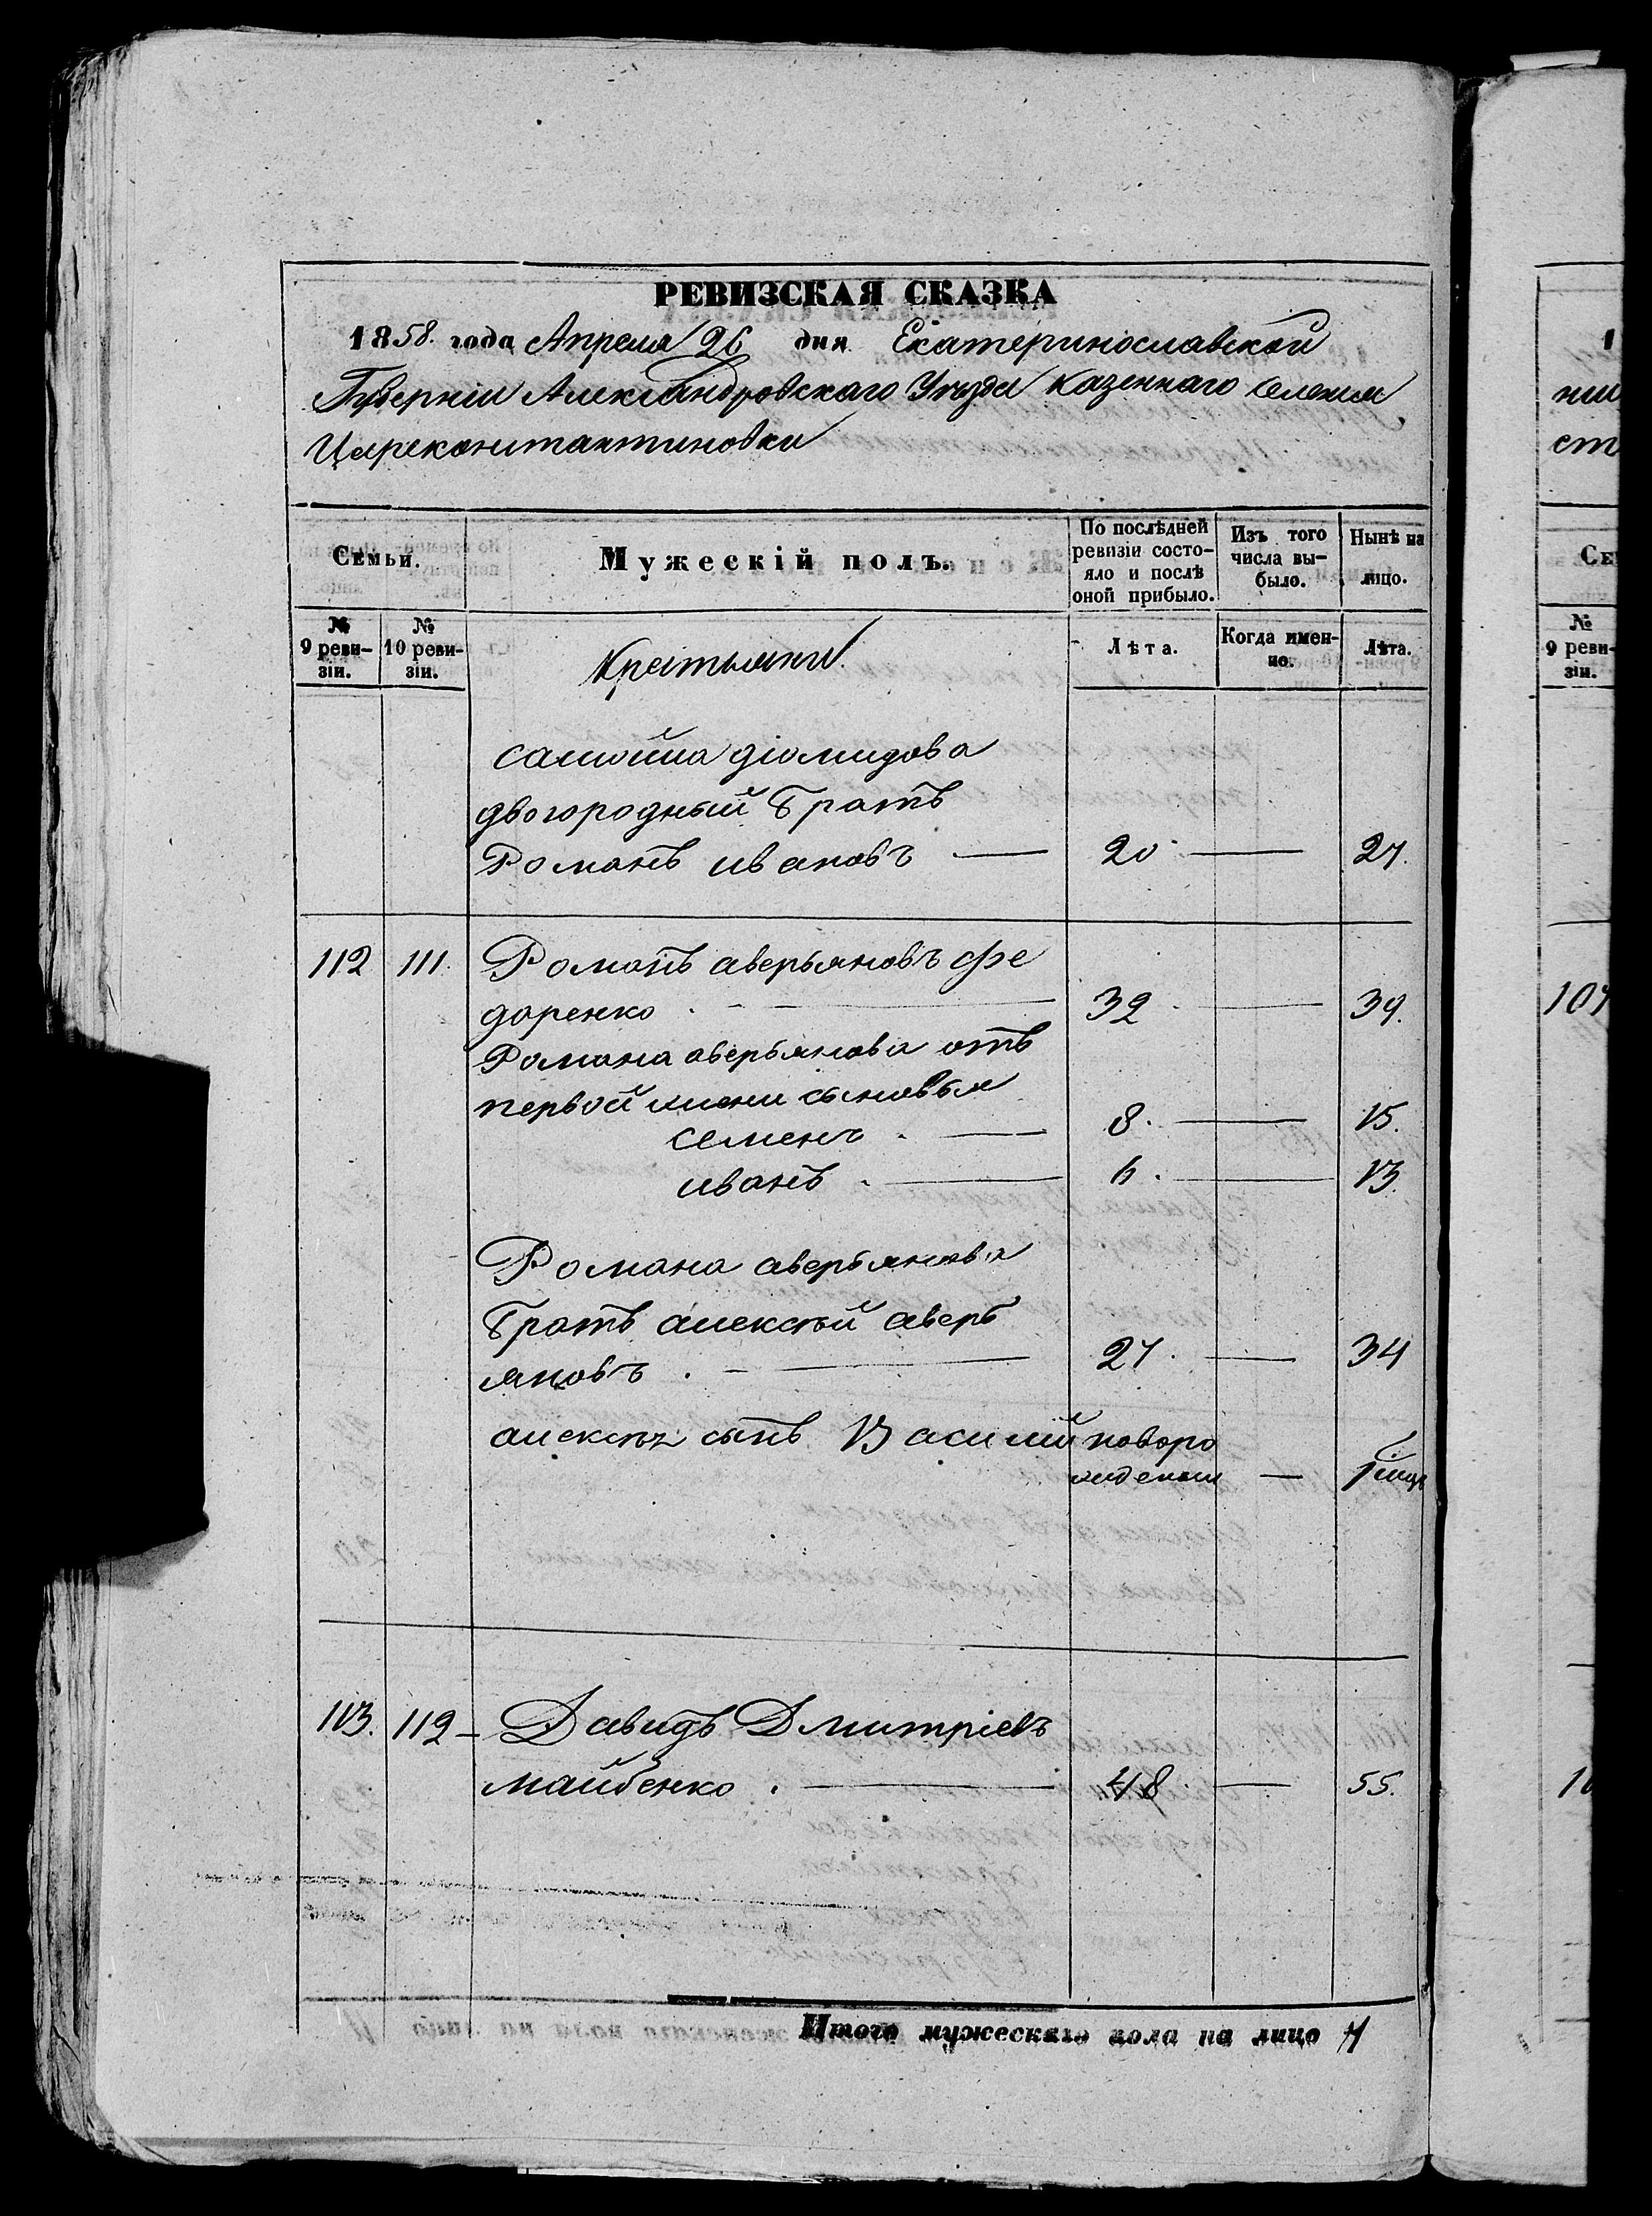 РЕВИЗСКАЯ СКАЗКА
1858 года Апреля 26 дня Екатеринославской
Губерніи Александровскаго Уѣзда казеннаго селенія
Цареконстантиновки
Семьи.
Мужескій полъ.
По послѣдней ревизіи состо-яло и послѣ оной прибыло.
Изъ того числа вы-было.
Нынѣ на лицо.
№ 9 реви-зіи.
№ 10 реви-зіи.
Крестьяне
Лѣта.
Когда имен-но.
Лѣта.
самойла діомидова
двоюродный братъ
Романъ ивановъ — 20 — 27.
112 111. Романъ аверьяновъ фе
доренко — 32 — 39.
Романа аверьянова отъ
первой жены сыновья
семенъ — 8. — 15.
иванъ — 6. — 13.
Романа аверьянова
братъ алексѣй аверь
яновъ — 27. — 34
алексѣя сынъ Василій новоро
жденный — 1 мѣся
113. 112 — Давидъ Дмитріевъ
майбенко — 48 — 55.
Итого мужескаго пола на лицо 7
ни
ст
Се
№
9 реви-
зіи.
107